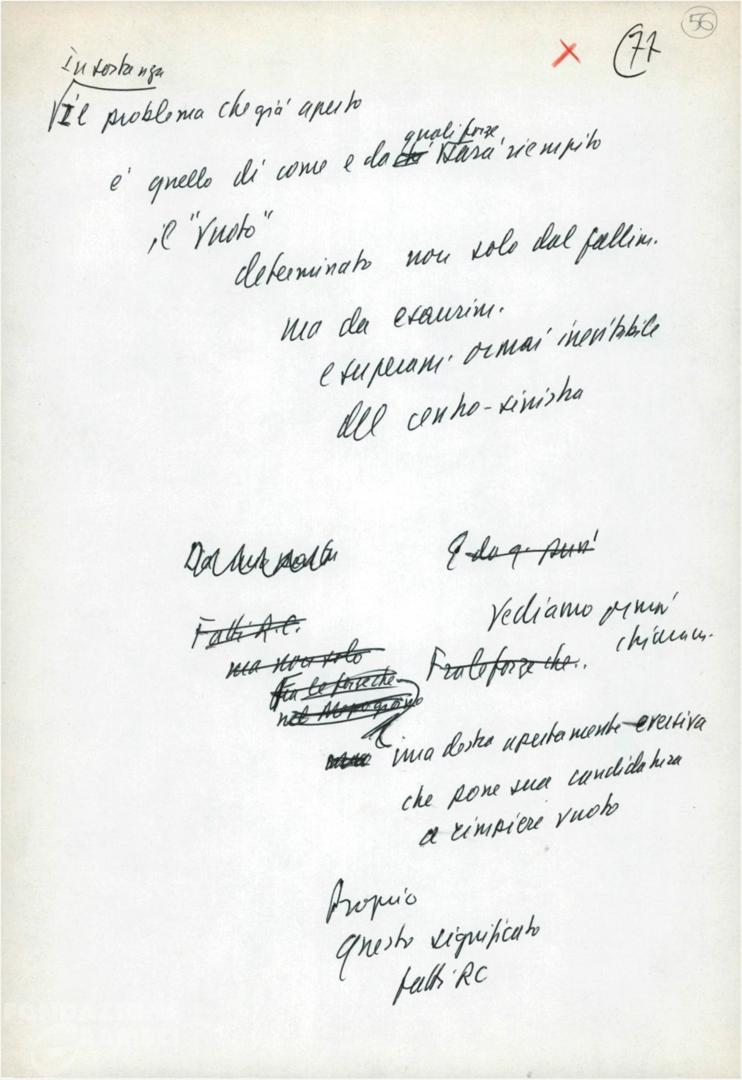 56
77
In sostanza
Il problema che già aperto
quali forze
è quello di come e da chi sarà riempito
il "vuoto"
determinato non solo dal fallim.
ma da esaurim.
e superam. ormai inevitabile
del centro-sinistra
E da q. punti
Fatti R.C.
Vediamo ormai
chiaram.
ma non solo
Fra le forze che..
Fra le forze che
nel
una destra apertamente eversiva
che pone sua candidatura
a riempire vuoto
Proprio
Questo significato
fatti RC
FONDAZIONE
GRAMSCI